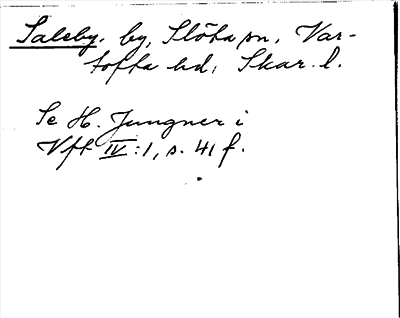 Saleby. by, Slöta sn, Var-
tofta hd, Skar. l.
Se H. Jungner i
Vft IV:1, s. 41 f.